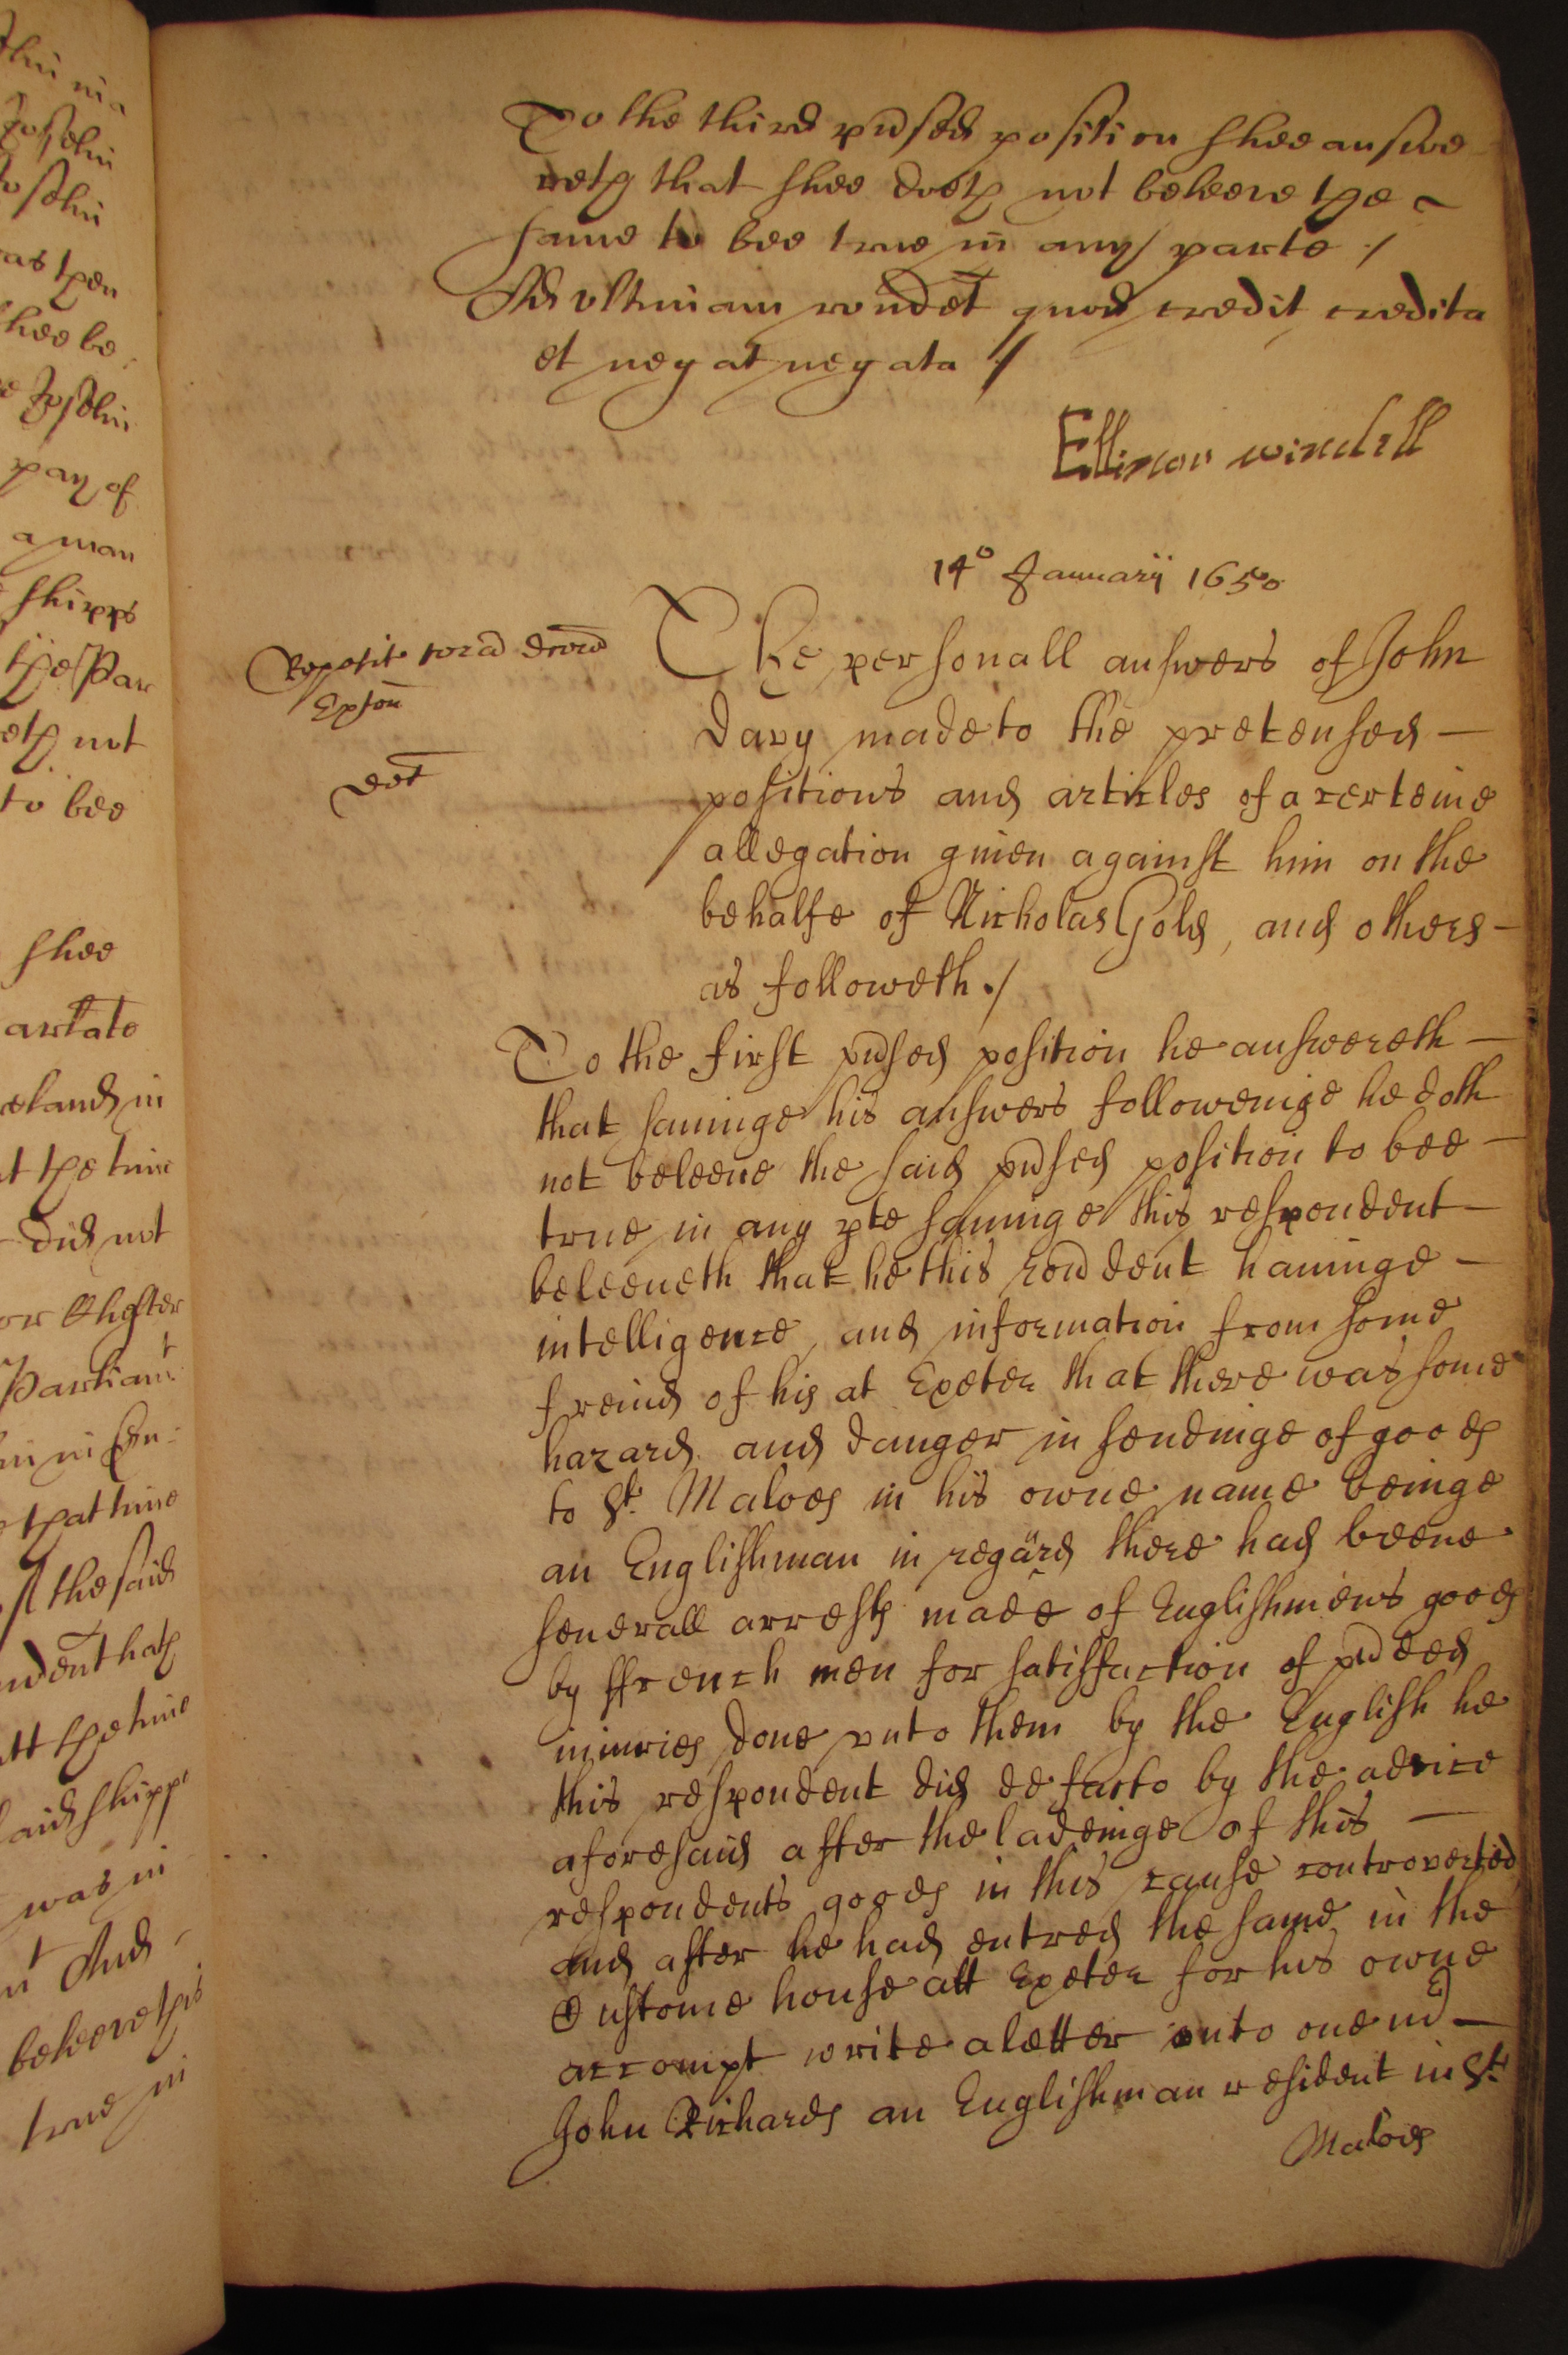 To the third p̄nsed position shee answe
reth that shee doeth not beleeve the
same to bee true in any parte ./
Ad vltimam rondet quod credit credita
et negat negata /
Ellinor windell
14° Januarij 1650
Reposit
Expon
The personall answers of John
Davy made to the pretensed —
positions and articles of a certeine
allegation giuen against him on the
behalfe of Nicholas Gold, and others —
as followeth ./
To the first p̄nsed position he answereth —
that sauinge his answers followeinge he doth
not beleeue the said p̄nsed position to bee —
true in any pte sauinge this respondent —
beleeueth that he this rondent hauinge —
intelligence, and information from some
freind of his at Exeter that there was some
hazard and danger in sendinge of goodes
to St. Maloes in his owne name beinge
an Englishman in regard there had beene
seuerall arrests made of Englishmens goodes
by ffrench men for satisfaction of
iniuries done vnto them by the English he
this respondent did de facto by the advice
aforesaid after the ladeinge of this —
respondents goodes in this cause controverted
and after he had entred the same in the
Custome house att Exeter for his owne
accompt write a letter vnto one mr —
John Richards an Englishman resident in St.
Maloes
shee
a man
shipps
to bee
did not
the said
was in
And
true in